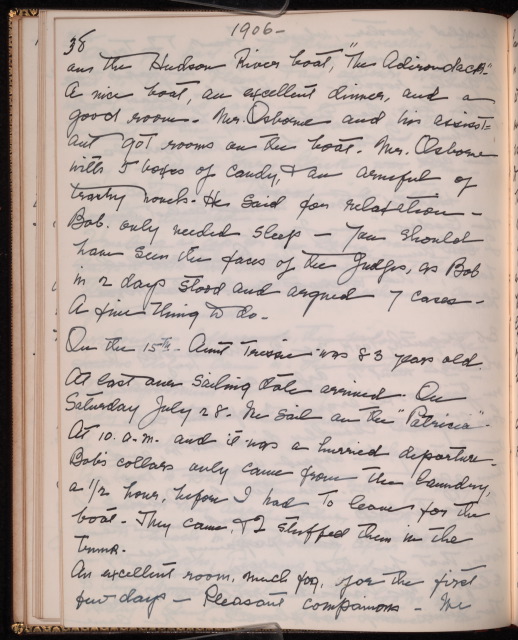 1906-
38
on the Hudson River boat, "The Adirondack."
A nice boat, an excellent dinner, and a
good room. Mr. Osborne and his assist=
ant got rooms on the boat. Mr. Osborne
with 5 boxes of candy, & an armful of
trashy novels. He said for relaxation -
Bob. only needed sleep - You should
have seen the faces of the Judges, as Bob
in 2 days stood and argued 7 cases -
A fine thing to do -
On the 15th - Aunt was 83 years old.
At last our sailing date arrived. On
Saturday July 28. We sail on the "Patricia"
At 10. a.m. and it was a hurried departure.
Bob's collars only came from the laundry,
a 1/2 hour, before I had to leave for the
boat. They came, & I stuffed them in the
trunk.
An excellent room, much fog, for the first
few days - Pleasant companions - We